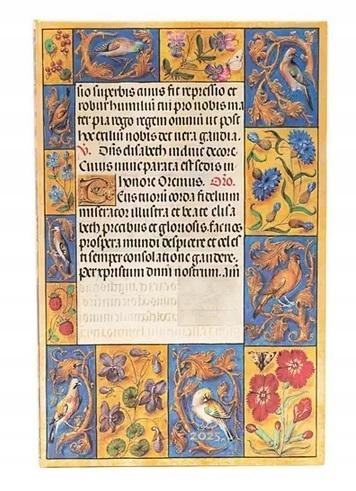 sio superbis cuius fit repressio et
robur humiliū tu pro nobis ma
ter pia rogo regem omniū ut post
hoc exiliū nobis det vera gaudia.
V. Dn̄s elisabeth induit decore.
Cuius nunc parata est sedis in
honore Oremus. Oro.
Tuorum corda fidelium
miserator illustra et beate elisa
beth precibus et gloriosis. fac nos
prospera mundi despicere et celes
ti semper consolatione gaudere.
Per xpristum dnm̄ nostrum. am̄
2025